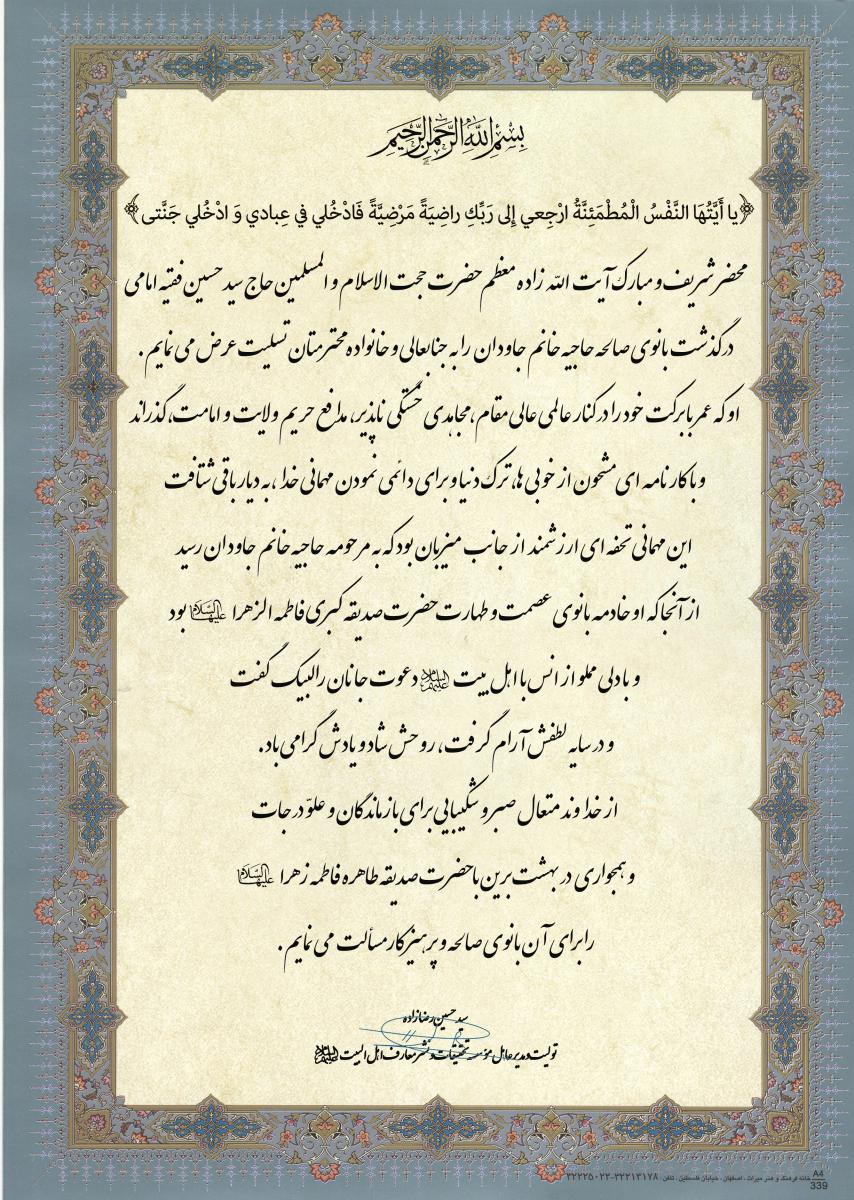 بسم الله الرحمن الرحیم
﴿یا أَيَّتُهَا النَّفْسُ الْمُطْمَئِنَّةُ ارْجِعي إِلى رَبِّكِ راضِيَةً مَرْضِيَّةً فَادْخُلي في عِبادي وَ ادْخُلي جَنَّتی﴾
محضر شریف و مبارک آیت الله زاده معظم حضرت حجت الاسلام و المسلمین حاج سید حسین فقیه امامی
درگذشت بانوی صالحه حاجیه خانم جاودان را به جنابعالی و خانواده محترمتان تسلیت عرض می نمایم .
او که عمر بابرکت خود را در کنار عالمی عالی مقام، مجاهدی خستگی ناپذیر، مدافع حریم ولایت و امامت، گذراند
و با کارنامه ای مشحون از خوبی ها، ترک دنیا و برای دائمی نمودن مهمانی خدا ، به دیار باقی شتافت
این مهمانی تحفه ای ارزشمند از جانب میزبان بود که به مرحومه حاجیه خانم جاودان رسید
از آنجا که او خادمه بانوی عصمت و طهارت حضرت صدیقه کبری فاطمه الزهرا علیها السلام بود
و با دلی مملو از انس با اهل بیت علیهم السلام دعوت جانان را لبیک گفت
و در سایه لطفش آرام گرفت، روحش شاد و یادش گرامی باد.
از خداوند متعال صبر و شکیبایی برای بازماندگان و علوّ درجات
و همجواری در بهشت برین با حضرت صدیقه طاهره فاطمه زهرا علیها السلام
را برای آن بانوی صالحه و پرهیزکار مسألت می نمایم .
سید حسین رضازاده
تولیت و مدیر عامل مؤسسه تحقیقات و نشر معارف اهل البیت علیهم السلام
خانه فرهنگ و هنر میراث ، اصفهان ، خیابان فلسطین ، تلفن : ۳۲۲۱۳۱۷۸-۳۲۲۲۵۰۲۲
A4
339